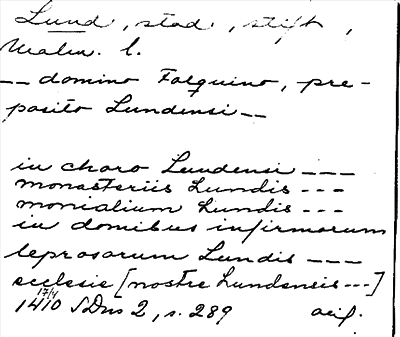 Lund, stad, stift,
Malm. l.
-- domino Folquino, pre-
posito Lundensi --
in choro Lundensi ---
monasteriis Lundis ---
monialium Lundis ---
in domibus infirmorum
leprosorum Lundis ---
ecclesie [nostre Lundensis ---]
1410 17/4 SDns 2, s. 289 avif.